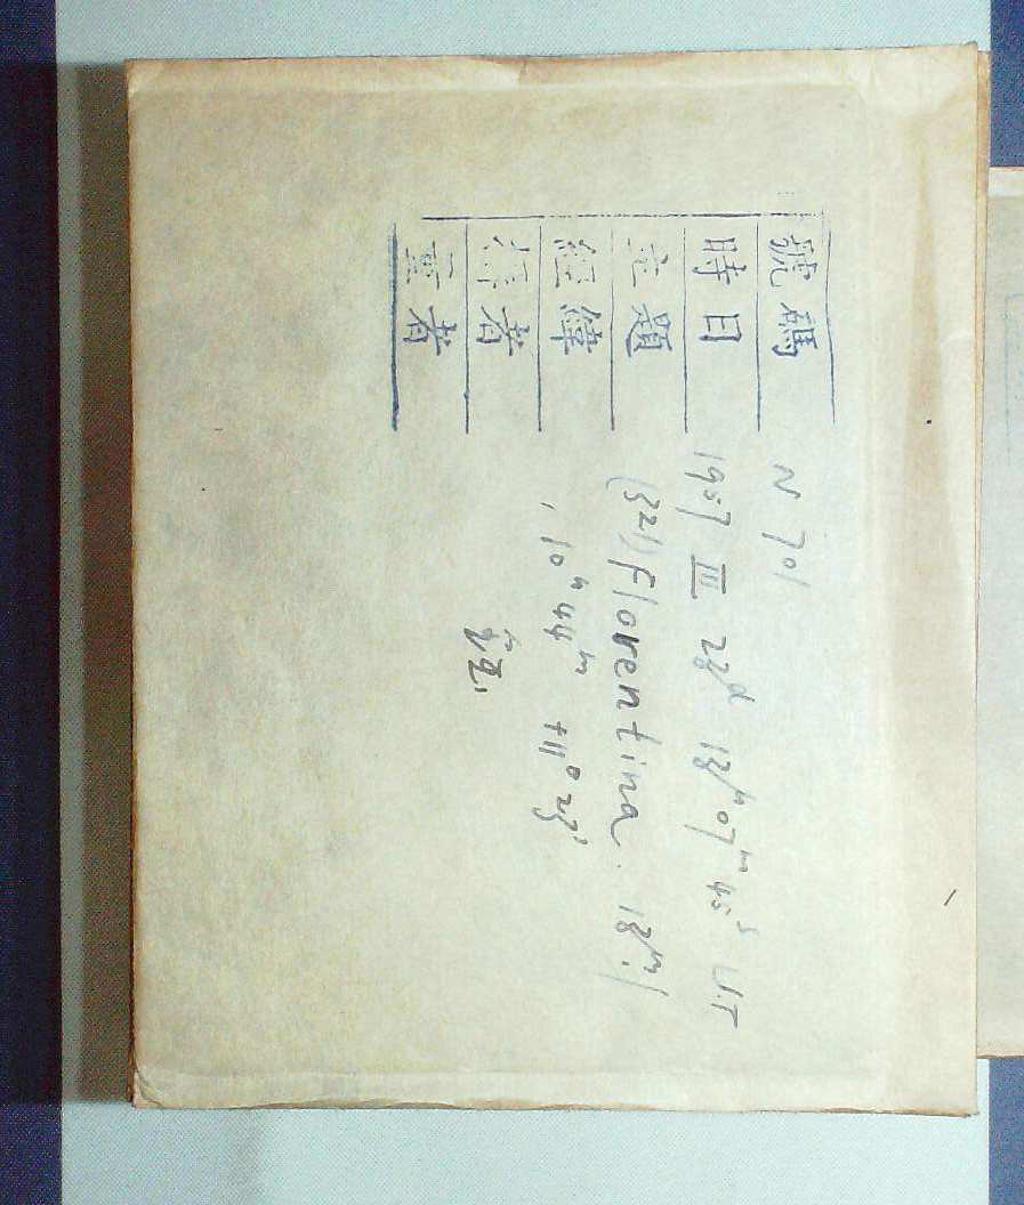 號碼 N 701
時日 1957 III 23ᵈ 13ʰ 07ᵐ 45ˢ U.T
主題 (321) Florentina. 13ᵐ.1
經緯 10ʰ 44ᵐ +11° 23'
攝者
量者